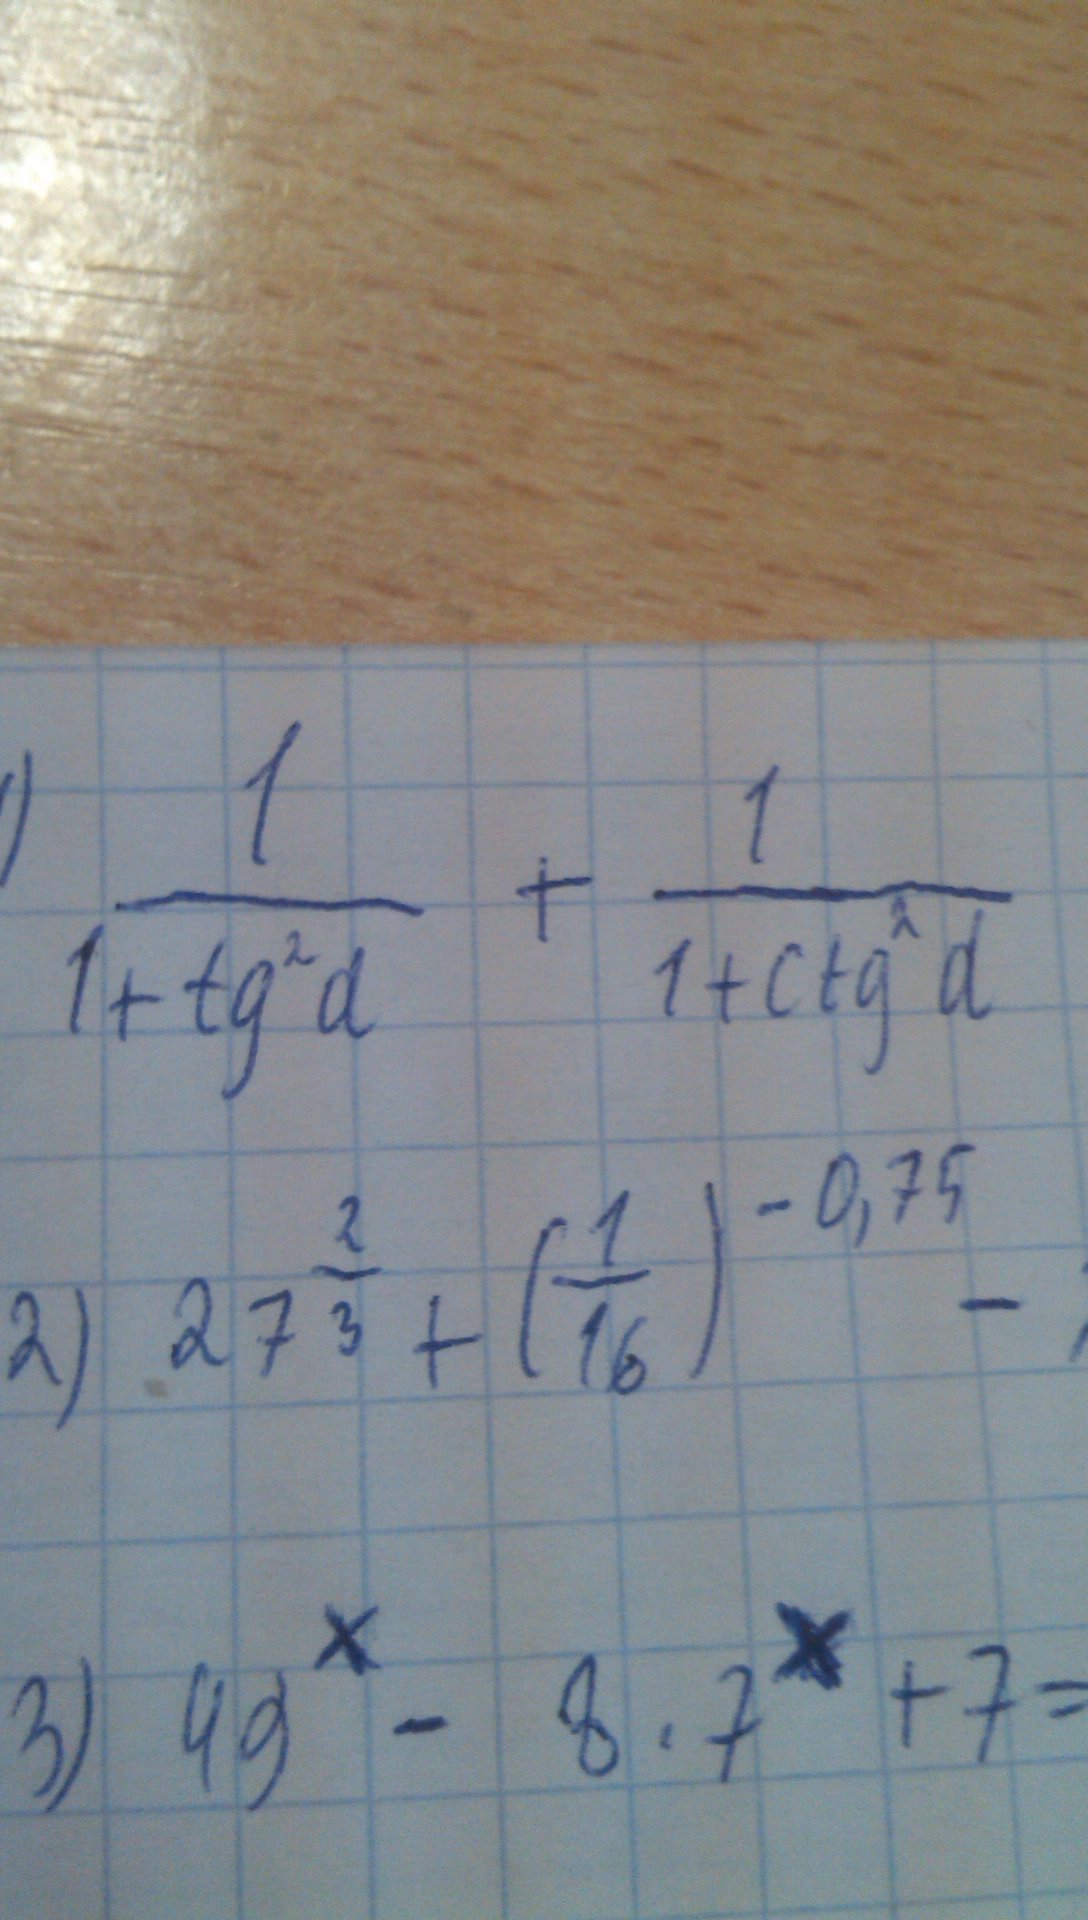 1) 1/(1+tg²d) + 1/(1+ctg²d)
2) 27^(2/3) + (1/16)^(-0,75) -
3) 49^x - 8·7^x + 7 =